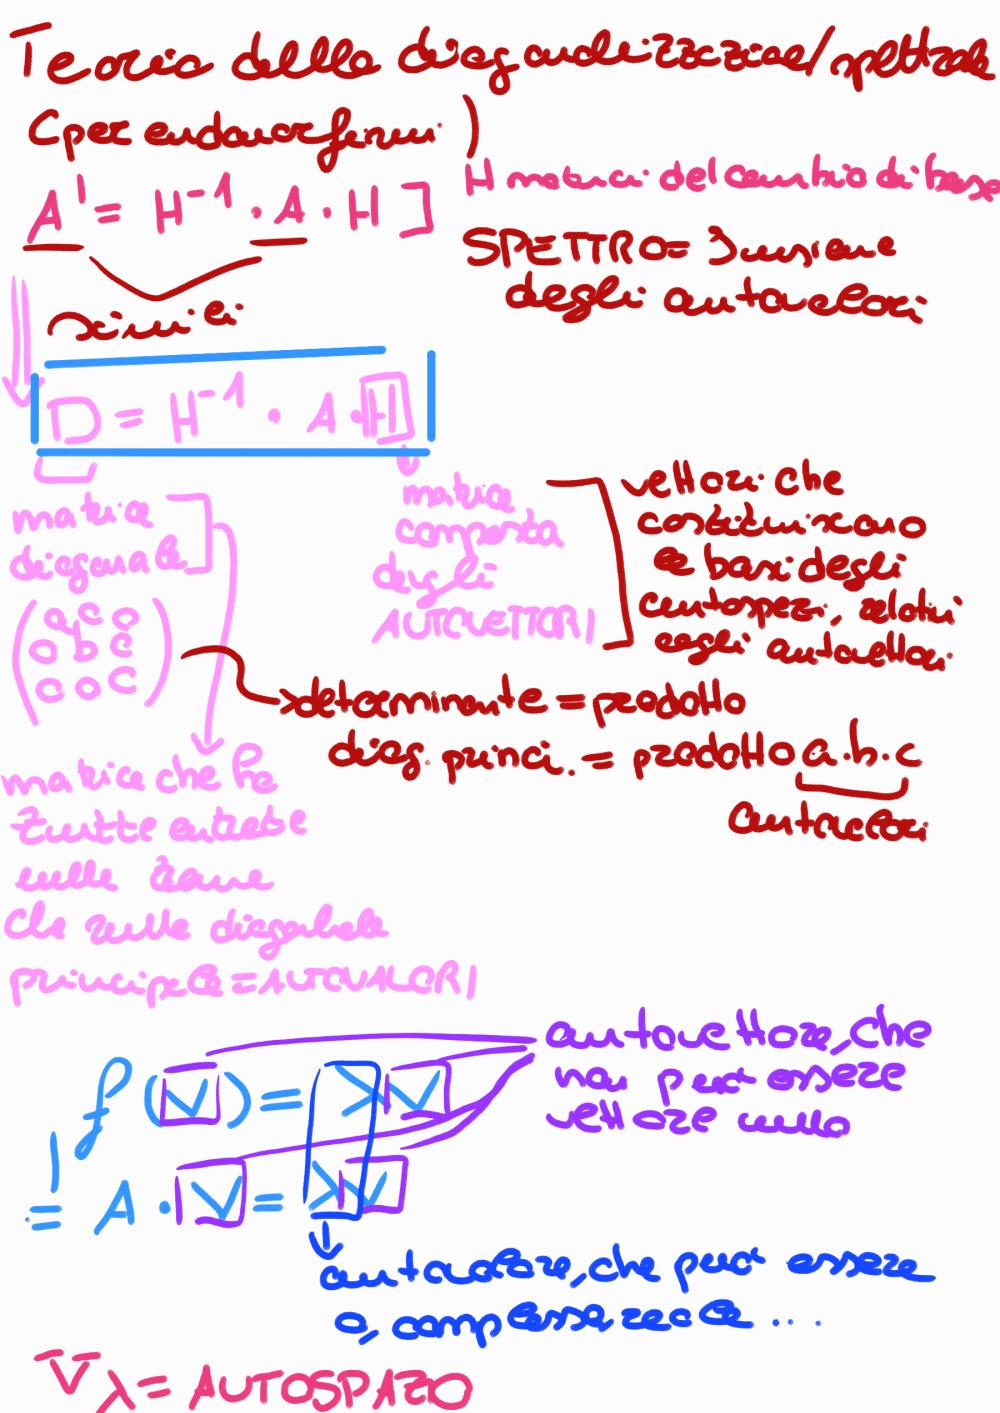 Teoria della diagonalizzazione/spettrale
(per endomorfismi)
A' = H⁻¹ · A · H ]
H matrici del cambio di base
simili
SPETTRO = Insieme
degli autovalori
D = H⁻¹ · A · H
matrice
diagonale
(a 0 0
0 b 0
0 0 c)
matrice
composta
degli
AUTOVETTORI
vettori che
costituiscono
le basi degli
autospazi, relativi
agli autovettori
>determinante = prodotto
diag. princi. = prodotto a.b.c
autovalori
matrice che ha
tutte entrate
nulle tranne
che sulla diagonale
principale = AUTOVALORI
f (v) = λv
= A · v = λv
autovettore, che
non può essere
vettore nullo
autovalore, che può essere
0, complesso, reale ...
Vλ = AUTOSPAZIO